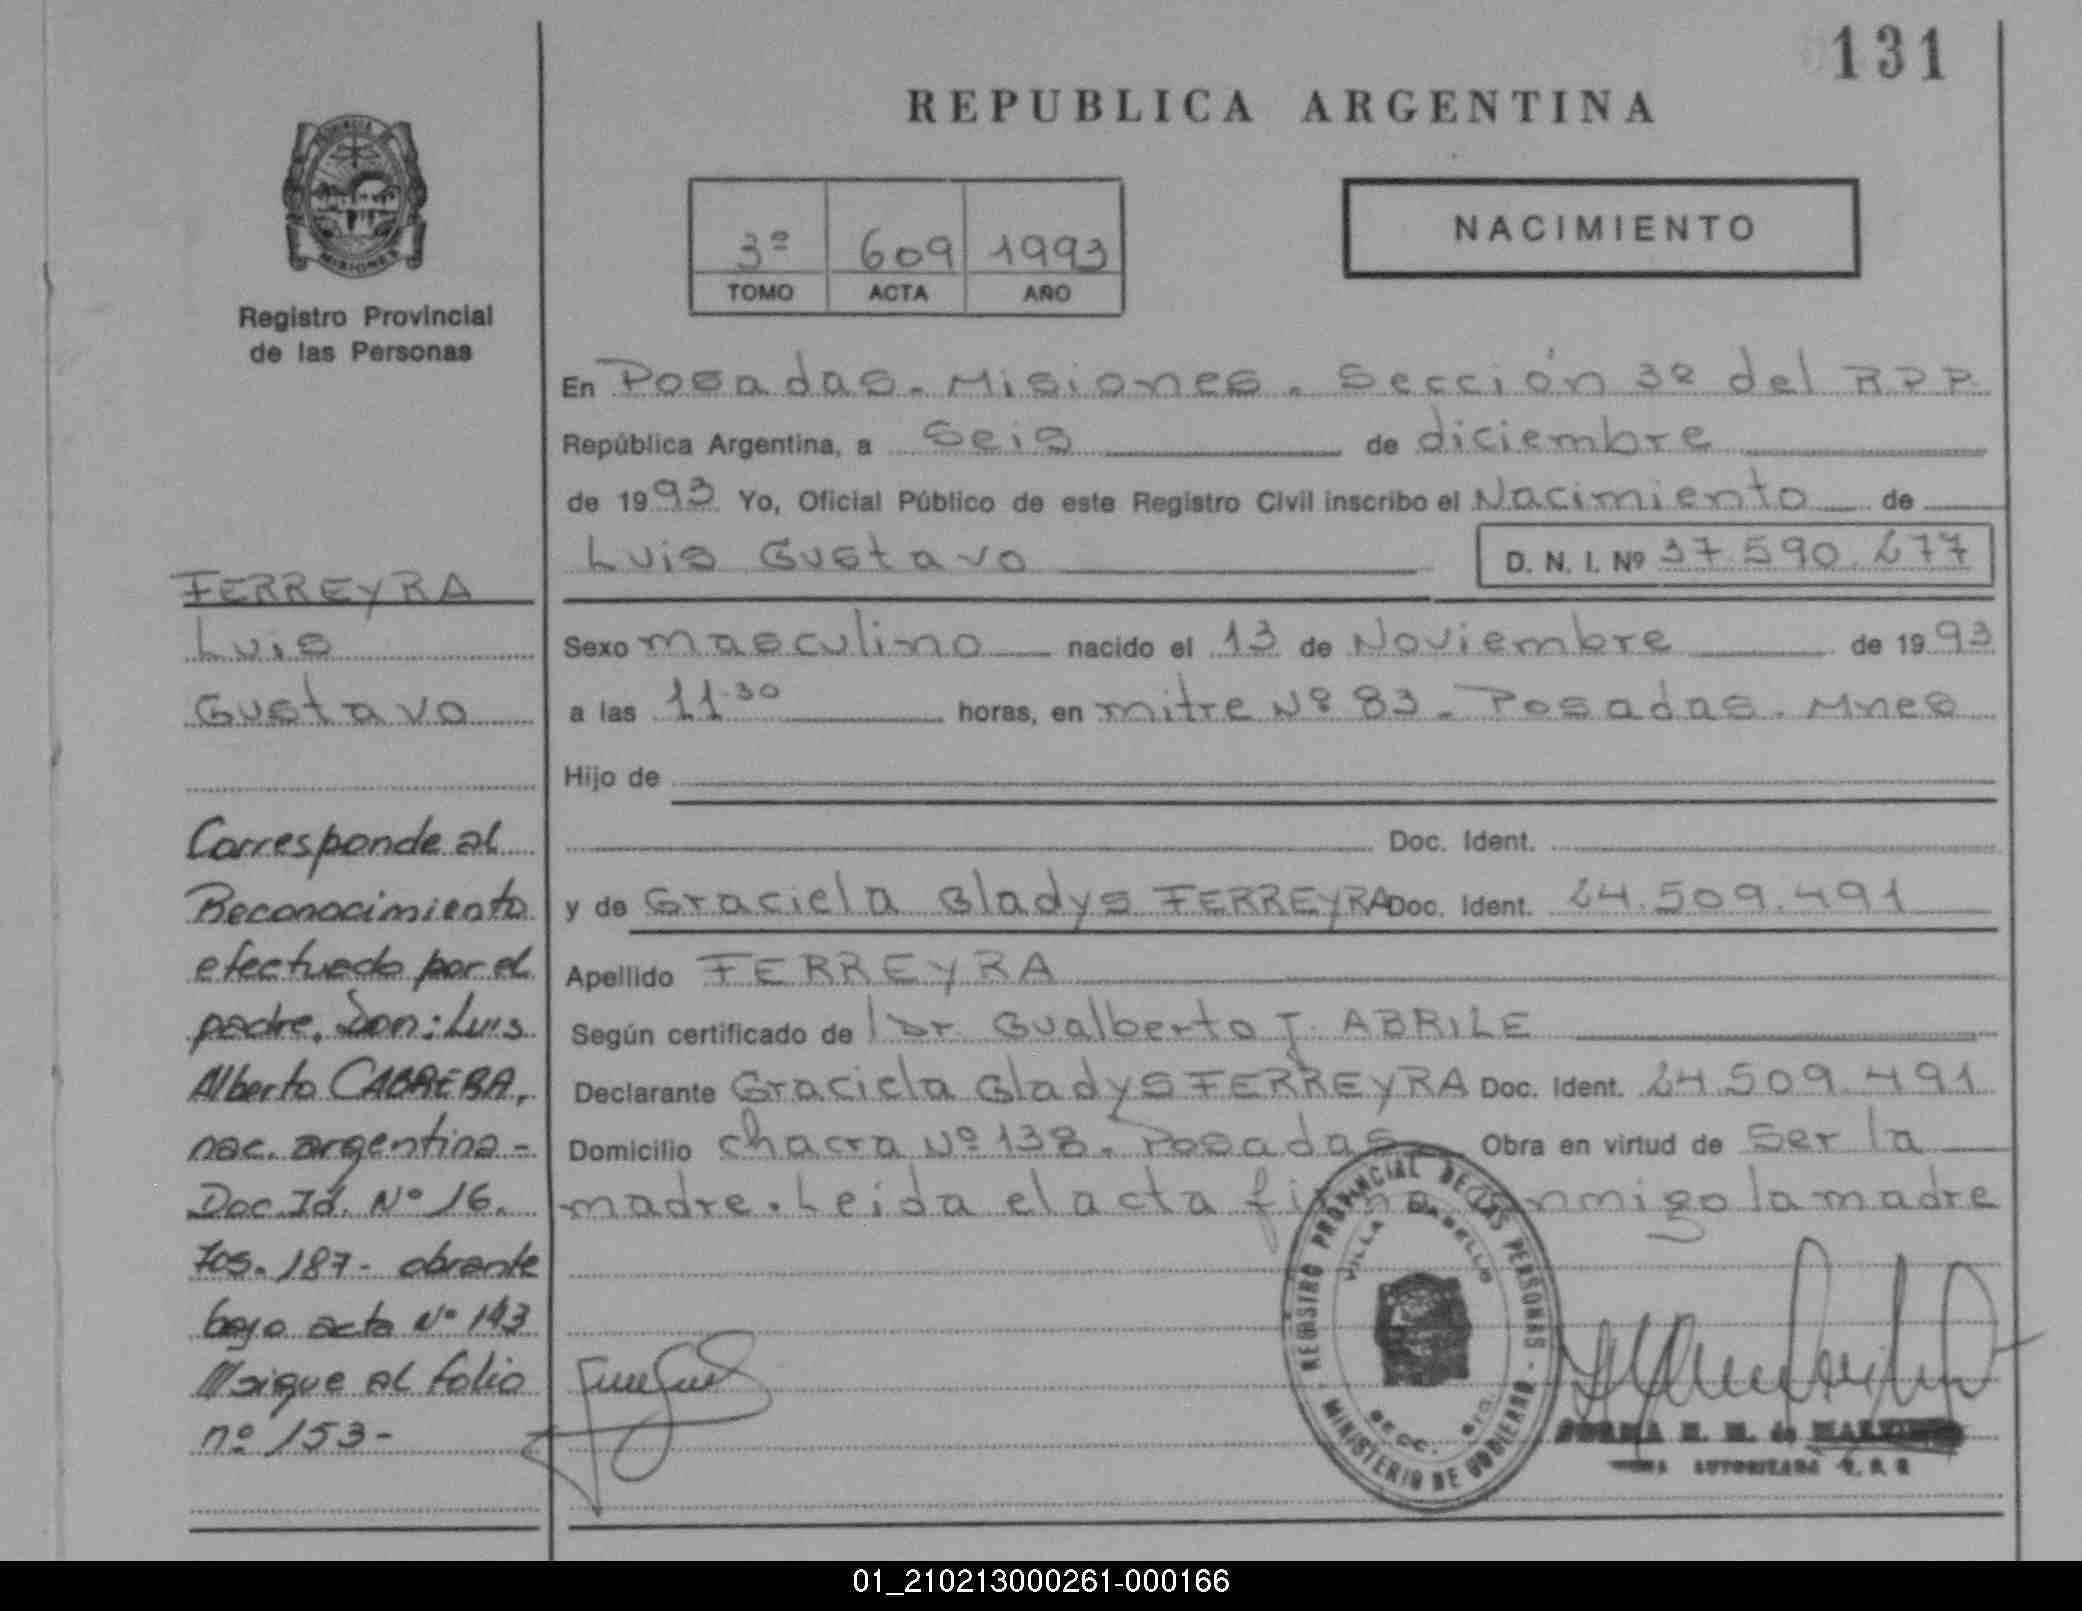 131
REPUBLICA ARGENTINA
3º 609 1993
TOMO ACTA AÑO
NACIMIENTO
MISIONES
Registro Provincial
de las Personas
En Posadas - Misiones - Sección 3º del R.P.P.
República Argentina, a Seis de diciembre
de 1993 Yo, Oficial Público de este Registro Civil inscribo el Nacimiento de
Luis Gustavo D. N. I. Nº 37.590.277
Sexo masculino nacido el 13 de Noviembre de 1993
a las 11.30 horas, en mitre Nº 83 - Posadas - Mnes
Hijo de
Doc. Ident.
y de Graciela Gladys FERREYRA Doc. Ident. 24.509.491
Apellido FERREYRA
Según certificado de Dr Gualberto J. ABRILE
Declarante Graciela Gladys FERREYRA Doc. Ident. 24.509.491
Domicilio chacra Nº 138 - Posadas Obra en virtud de Ser la
madre. Leida el acta firma conmigo la madre
FERREYRA
Luis
Gustavo
Corresponde al
Reconocimiento
efectuado por el
padre, Don: Luis
Alberto CABRERA,
nac. argentina -
Doc. Id. Nº 16.
705.187 - obrante
bajo acta Nº 143
al folio
nº 153 -
REGISTRO PROVINCIAL DE LAS PERSONAS - MINISTERIO DE GOBIERNO
VILLA CABELLO
SECC.
NORMA de
AUTORIZADA
01_210213000261-000166